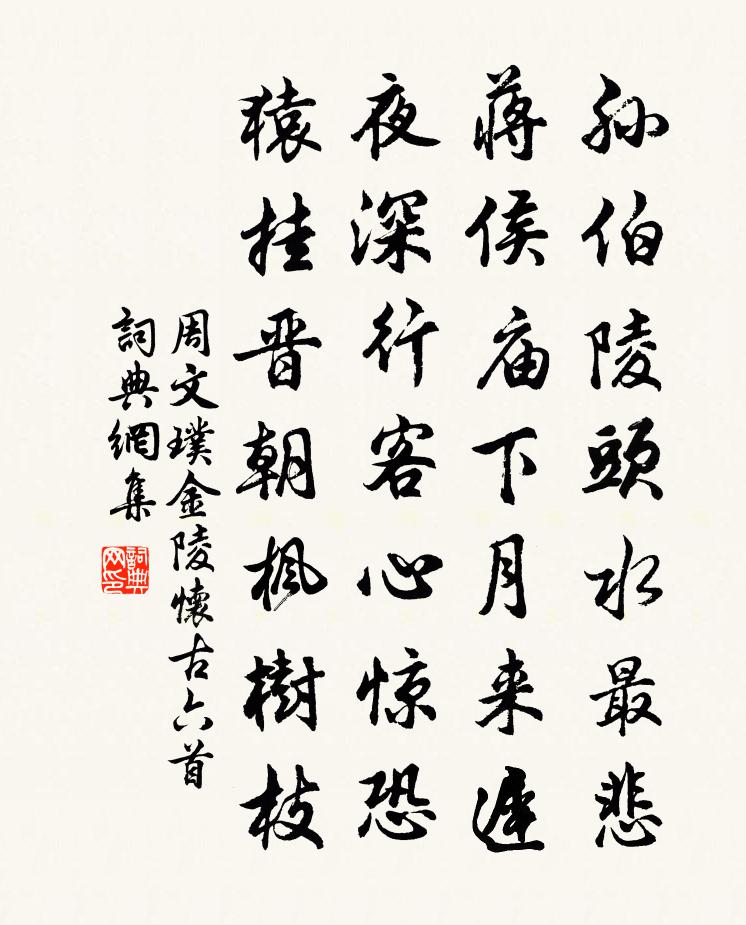 孙伯陵頭水最悲
蒋侯庙下月来遲
夜深行客心惊恐
猿挂晋朝枫樹枝
周文璞金陵懷古六首
詞典網集
詞典网印